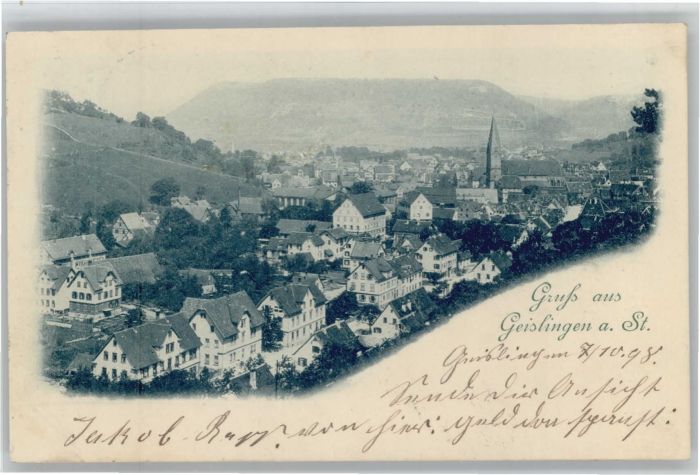 Gruß aus
Geislingen a. St.
Geislingen 7/10.98.
Sende Dir Ansicht
Jakob Rapp. von hier: Geld don sparst: